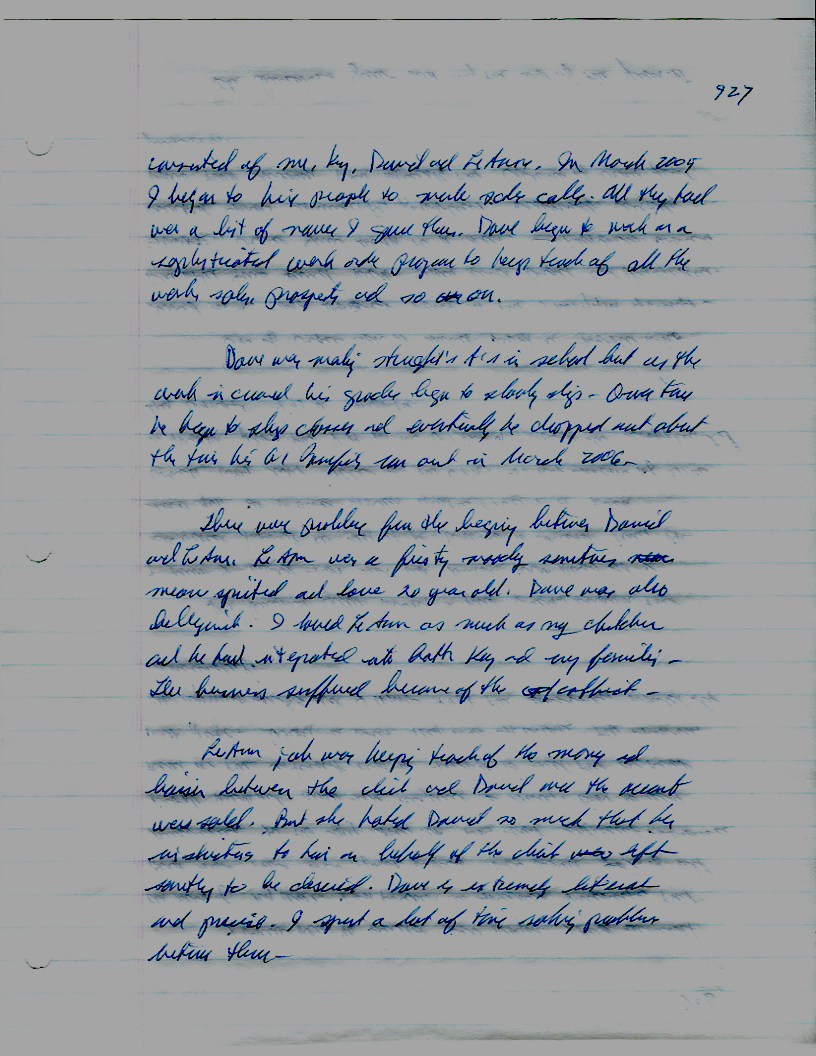 927
consisted of me, Kay, David and LeAnn. In March 2005
I began to hire people to make sales calls. All they had
was a list of names I gave them. Dave began to work on a
sophisticated work order program to keep track of all the
work, sales prospects and so on.
Dave was making straight A's in school but as the
work increased his grades began to slowly slip - Over time
he began to skip classes and eventually he dropped out about
the time his GI Benefits ran out in March 2006-
There were problems from the beginning between David
and LeAnn. LeAnn was a feisty moody sometimes
mean spirited and 20 year old. Dave was also
. I loved LeAnn as much as my children
and he had integrated into both Kay and my families -
The business suffered because of the conflict -
LeAnn job was keeping track of the money and
liaison between the client and David once the account
were sold. But she hated David so much that her
instructions to him on behalf of the client left
to be desired. Dave is extremely literal
and precise. I spent a lot of time solving problems
between them-